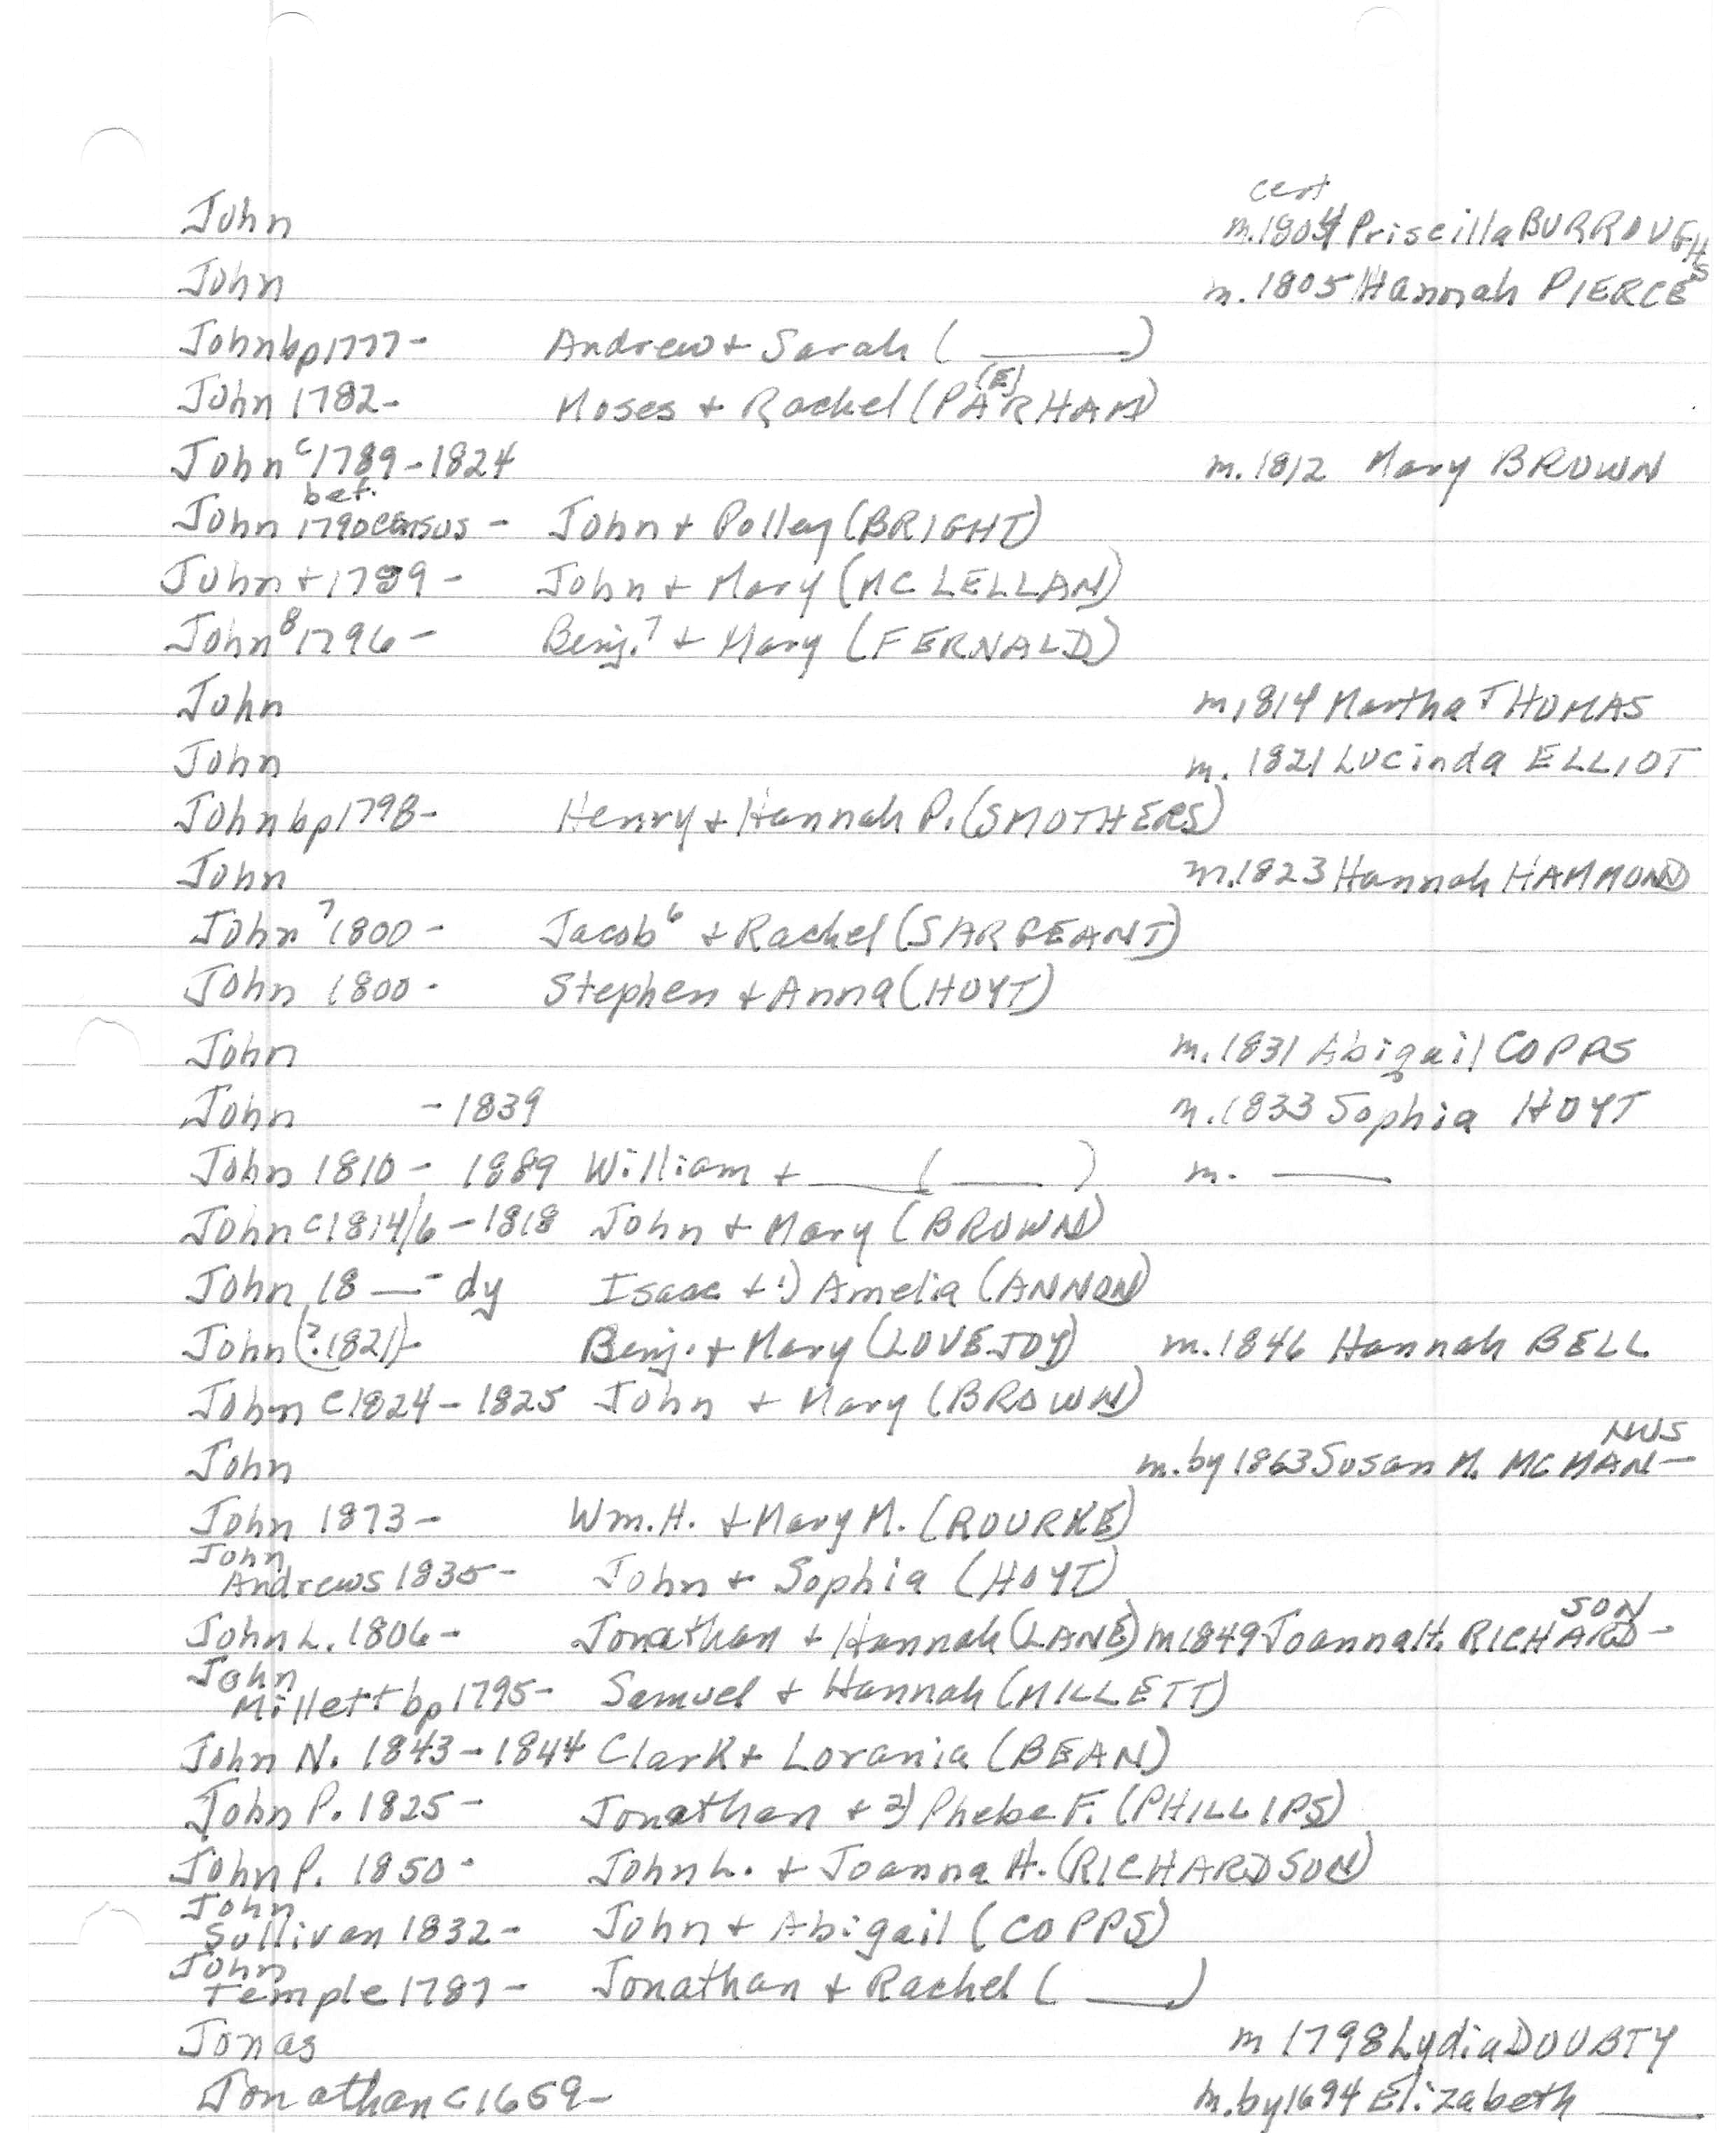 cert
John m.1804 Priscilla BURROUGHS
John m. 1805 Hannah PIERCE
John bp 1777- Andrew + Sarah ( ____ )
(E)
John 1782- Moses + Rachel (PARHAM)
John c1789-1824 m. 1812 Mary BROWN
bef.
John 1790 census - John + Polley (BRIGHT)
John + 1789 - John + Mary (MCLELLAN)
John 8 1796 - Benj. 7 + Mary (FERNALD)
John m 1814 Martha THOMAS
John m. 1821 Lucinda ELLIOT
John bp 1798- Henry + Hannah P. (SMOTHERS)
John m.1823 Hannah HAMMOND
John 7 1800 - Jacob 6 + Rachel (SARGEANT)
John 1800 - Stephen + Anna (HOYT)
John m. 1831 Abigail COPPS
John - 1839 m. 1833 Sophia HOYT
John 1810 - 1889 William + ____ ( ____ ) m. ____
John c1814/6 - 1818 John + Mary (BROWN)
John 18 __ - dy Isaac + 1) Amelia (ANNON)
John (?1821)- Benj. + Mary (LOVEJOY) m. 1846 Hannah BELL
John c1824 - 1825 John + Mary (BROWN)
NUS
John m. by 1863 Susan M. MCMAN-
John 1873 - Wm. H. + Mary M. (ROURKE)
John
Andrews 1835 - John + Sophia (HOYT)
SON
John L. 1806 - Jonathan + Hannah (LANE) m 1849 Joanna H. RICHARD-
John
Millett bp 1795- Samuel + Hannah (MILLETT)
John N. 1843 - 1844 Clark + Lorania (BEAN)
John P. 1825 - Jonathan + 2) Phebe F. (PHILLIPS)
John P. 1850 - John L. + Joanna H. (RICHARDSON)
John
Sullivan 1832 - John + Abigail (COPPS)
John
Temple 1787 - Jonathan + Rachel ( ____ )
Jonas m 1798 Lydia DOUBTY
Jonathan c1659- m. by 1694 Elizabeth ____